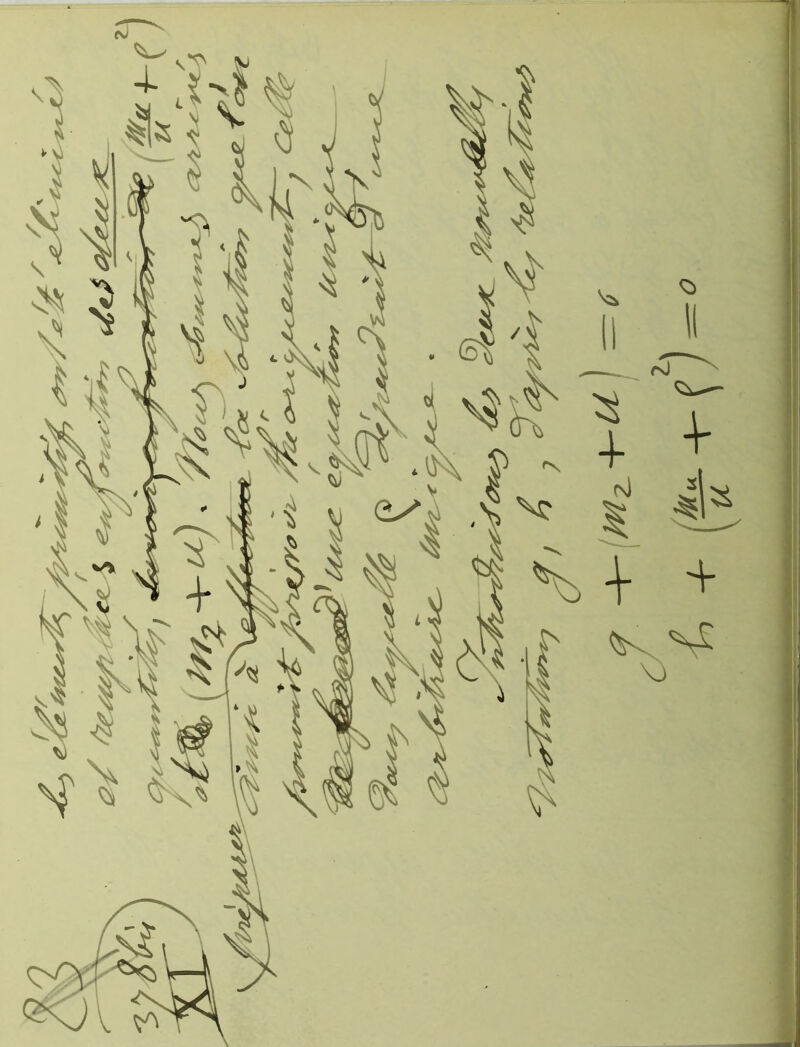 23
378 bis
XI
les éléments primitifs ont été éliminés
et remplacés en fonction des deux
quantités, savoir en fonction de (mu/u + ρ²)
et de (m₂ + u). Nous sommes arrivés
préparer
ainsi à effectuer la solution que l'on
pouvait prévoir théoriquement, celle
d'une équation unique
dans laquelle ρ dépendrait d'une
arbitraire unique.
Introduisons les deux nouvelles
notations g, h, d'après les relations
g + (m₂ + u) = 0
h + (mu/u + ρ²) = 0